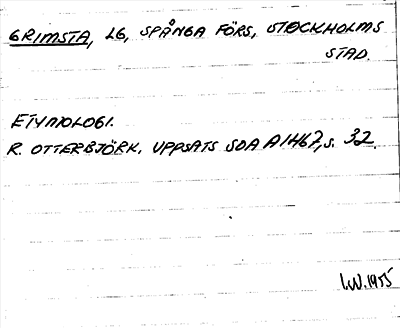 GRIMSTA, LG, SPÅNGA FÖRS, STOCKHOLMS
STAD.
ETYMOLOGI.
R. OTTERBJÖRK. UPPSATS SOA A 1467, s. 32.
1955